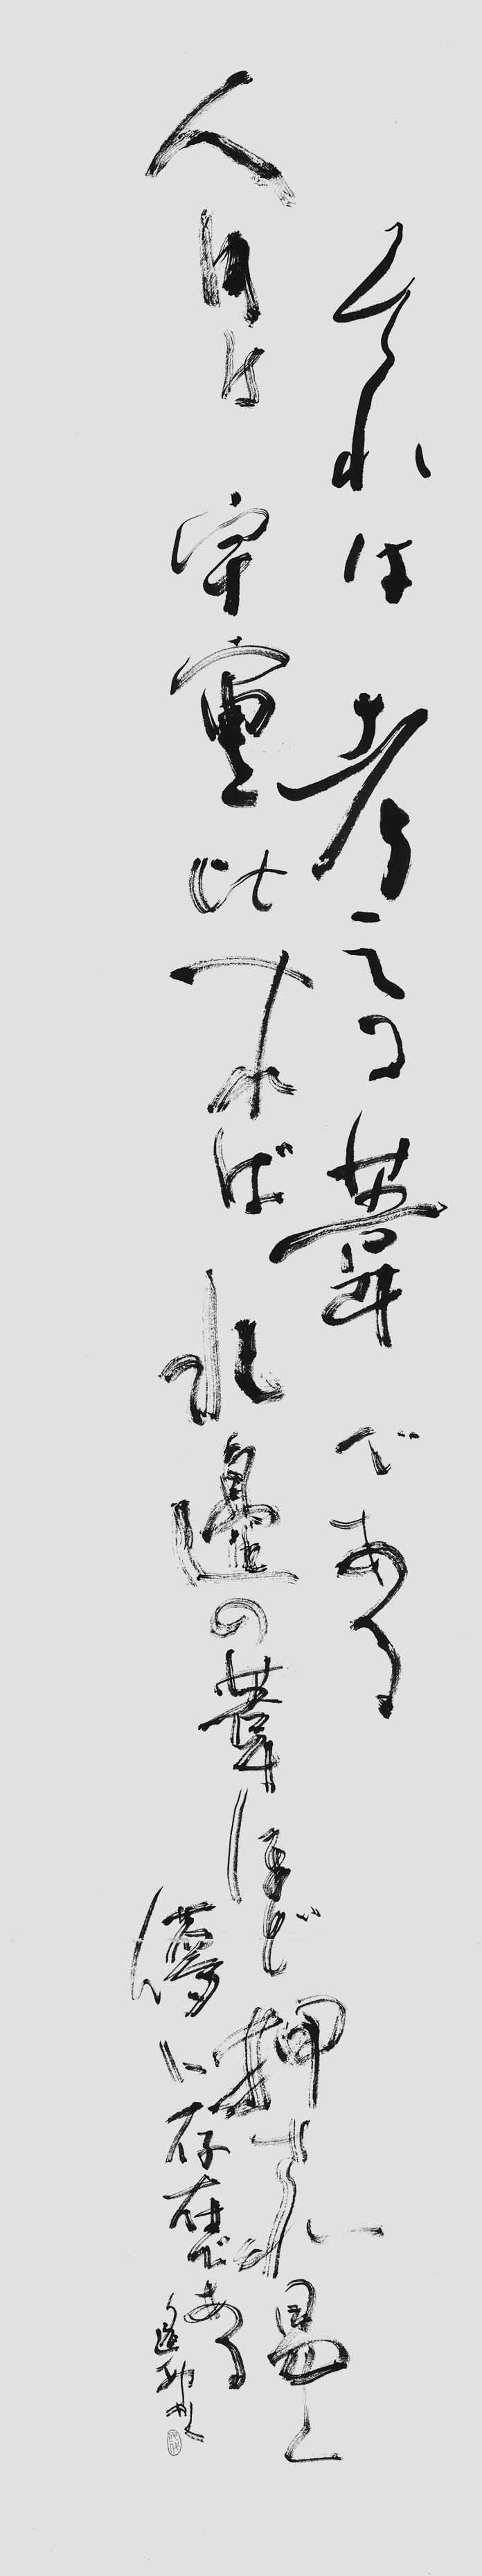 それは考える葦である
人間は宇宙比すれば水邊の葦ほどされ易く
儚い存在である